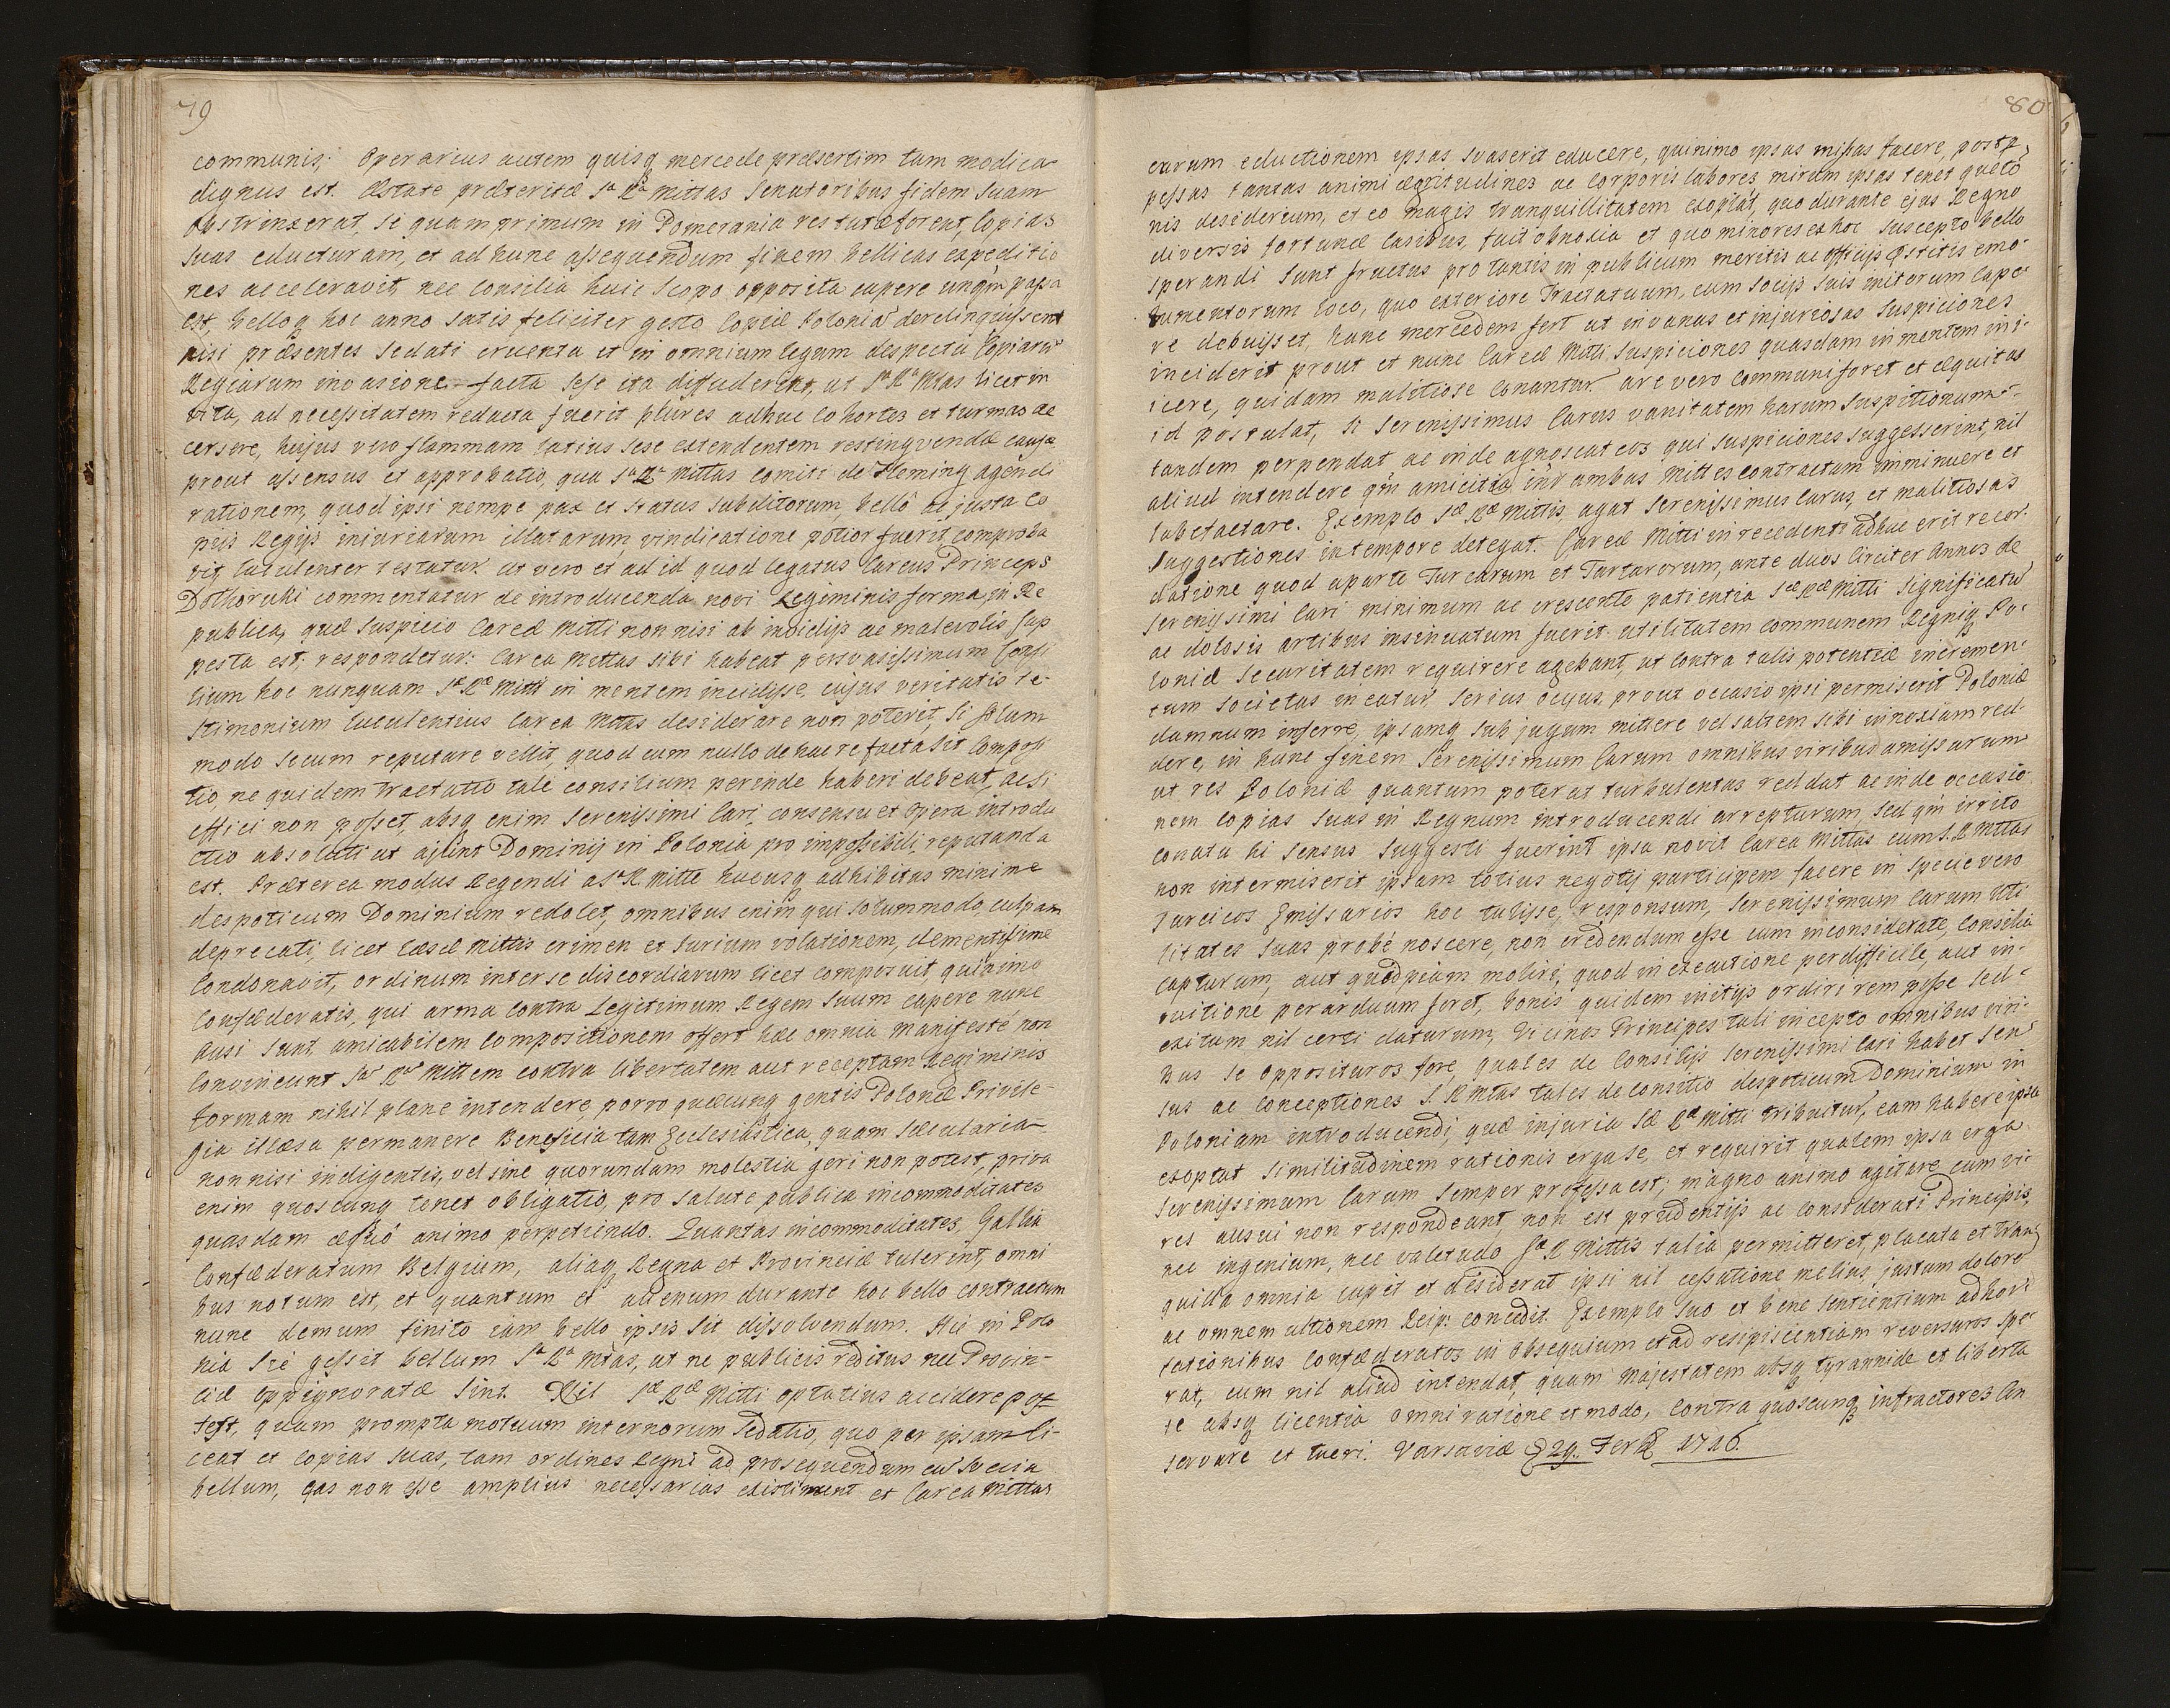 79
communis; Operarius autem quisq mercede præsertim tam modica
dignus est. Æstate præterita Sa Ra Mittas Senatoribus fidem suam
obstrinxerat, se quamprimum in Pomerania res tutæ forent, Copias
suas educturam, et ad hunc assequendum finem bellicas expeditio
nes acceleravit, nec Consilia huic Scopo opposita capere unqm passa
est, belloq hoc anno satis feliciter gesto Copiæ Polonia derelinquissent
nisi præsentes Sedati cruenta et in omnium legum despectu Copiaru
Regiarum invasione facta sese ita diffuderint, ut Sa Ra Mtas licet in
vita, ad necessitatem redacta fuerit plures adhuc Cohortes et turmas ac
cersere, hujus vero flammam latius sese extendentem restingvendæ causa
prout assensus et approbatio, qua Sa Ra Mittas Comiti de Fleming agendi
rationem, quod ipsi nempe pax et status subditorum, bello ac justa Co
piis Regijs iniuriarum illatarum vindicatione potior fuerit, comproba
vit, luculenter testatur. Ut vero et ad id quod legatus Careus Princeps
Dolhoruki commentatur de introducenda novi Regiminis forma in Re
publica, quæ suspicio Careæ Mitti non nisi ab invidijs ac malevolis sup
pesta est, respondetur: Carea Mittas sibi habeat persvasissimum Consi
lium hoc nunquam Sæ Ræ Mitti in mentem incidisse, cujus veritatis te-
stimonium luculentius Carea Mttas desiderare non poterit, si solum
modo secum reputare vellit, quod cum nullo de hac re facta sit Composi
tio, ne quidem tractatio tale consilium perinde haberi debeat, ac si
effici non posset, absq enim Serenissimi Cari, consensu et opera introdu
ctio absoluti ut ajunt Dominij in Polonia pro impossibili, reputanda
est. Præterea modus Regendi a Sa R. Mitte hucusq adhibitus minime
despoticum Dominium redolet, omnibus enim qui solummodo culpam
deprecati, licet læsæ Mittis crimen et Jurium volationem, clementissime
Condonavit, ordinum inter se discordiarum licet composuit, quinimo
Confæderatis, qui arma contra Legitimum Regem suum capere nunc
ausi sunt, amicabilem Compositionem offert hæc omnia manifesté non
Convincunt Sae Rae Mittem contra libertatem aut receptam Regiminis
formam nihil plane intendere, porro quæcunq gentis Polonæ Privile-
gia illæsa permanere Beneficia tam Ecclesiastica, quam sæcularia
non nisi indigentis, vel sine quorundam molestia geri non potest, priva
enim quoscunq tenet obligatio, pro salute publica incommoditates
quasdam æquo animo perpetiendo. Quantas incommoditates, Gallia
Confæderatum Belgium, aliaq Regna et Provinciæ tulerint, omni
bus notum est, et quantum et alienum durante hoc bello contractum
nunc demum finito iam bello ipsis sit dissolvendum. Hic in Polo
nia sic gessit bellum Sa Ra Mtas, ut ne publicis reditus nec Provin-
ciæ Oppignoratæ sint. Nil Sæ Ræ Mitti optatius accidere pos-
test, quam prompta motuum internorum Sedatio, quo per ipsam li-
ceat et Copias suas, tam ordines Regni ad prosequendum cu Svecia
bellum, eas non esse amplius necessarias existimant et Carea Mittas
80
earum eductionem ipsas svaserit educere, quinimo ipsas missas facere, post p
pessas tantas animi ægritudines ac Corporis labores, mirum ipsas tenet quieto
nis desiderium, et eo magis tranquillitatem exoptat, quo durante ejus Regno
diversis fortunæ Casibus, fuit obnoxia et quo minores ex hoc suscepto bello
sperandi sunt fructus pro tantis in publicum meritis ac officijs Pstitis emo-
lumentorum loco, quo exteriore Tractatuum, cum Socijs suis initorum cape
re debuisset, hanc mercedem fert ut in vanas et injuriosas Suspiciones
inciderit prout et nunc Careæ Mitti, Suspiciones quasdam in mentem ini-
icere, quidam malitiose Conantur. are vero Communi foret et æquitas
id postulat, si Serenissimus Carus vanitatem harum Suspitionum
tandem perpendat ac inde agnoscat eos qui suspiciones suggesserint, nil
aliud intendere qm amicitia intr ambas Mittes contractam imminuere et
labefactare. Exemplo Sæ Ræ Mittis agat Serenissimus Carus, et malitiosas
suggestiones in tempore detegat. Careæ Mitti in recedenti adhuc erit recor-
datione quod aparte Turcarum et Tartarorum, ante duos Circiter Annos de
Serenissimi Cari minimum ac crescente patientia Sæ Ræ Mitti Significatu
ac dolosis artibus insinuatum fuerit. utilitatem communem Regniq Po-
loniæ Securitatem requirere agebant, ut Contra talis potentiæ incremen-
tum societas ineatur, serius ocyus, prout occasio ipsi permiserit Poloniæ
damnum inferre, ipsamq sub jugum mittere vel saltem sibi innoxiam red-
dere, in hunc finem Serenissimum Carum omnibus viribus amissarum
ut res Poloniæ quantum poterat turbulentas reddat ac inde occasio
nem Copias suas in Regnum introducendi arrepturum, sed qm irrito
Conatu hi sensus suggesti fuerint ipsa novit Carea Mittas cum S. R Mttas
non intermiserit ipsam totius negotij participem facere in specie vero
Turcicos Emissarios hoc tulisse, responsum, Serenissimum Carum Uti
litates suas probé noscere, non credendum esse eum inconsiderate, Consilia
Capturum, aut quodpiam moliri, quod in executione perdifficile, aut in-
tuitione perarduum foret, bonis quidem initijs ordiri rem posse sed
exitum nil certi daturum, Vicinos Principes tali incepto omnibus viri-
bus se opposituros fore, quales de Consilijs Serenissimi Cari habet sen
sus ac Conceptiones S. R Mtas tales de Consilio despoticum Dominium in
Poloniam introducendi, quæ injuria Sæ Ræ Mitti tribuitur, eam habere ipsa
exoptat similitudinem rationis erga se, et requirit qualem ipsa erga
Serenissimum Carum semper professa est; magno animo agitare cum vi-
res ausui non respondeant, non est prudentijs ac Considerati Principis,
nec ingenium, nec valetudo Sæ R Mittis talia permitteret, placata et tran
quilla omnia cupit et desiderat ipsi nil cessatione melius, justam dolore
ac omnem ultionem Reip: concedit. Exemplo suo et bene sentientium adhor
tationibus Confæderatos in obsequium et ad resipiscentiam reversuros spe
rat, cum nil aliud intendat, quam Majestatem absq tyrannide et liberta
te absq licentia omni ratione et modo, contra quoscunq infractores Con
servare et tueri. Varsaviæ 29. 1716.